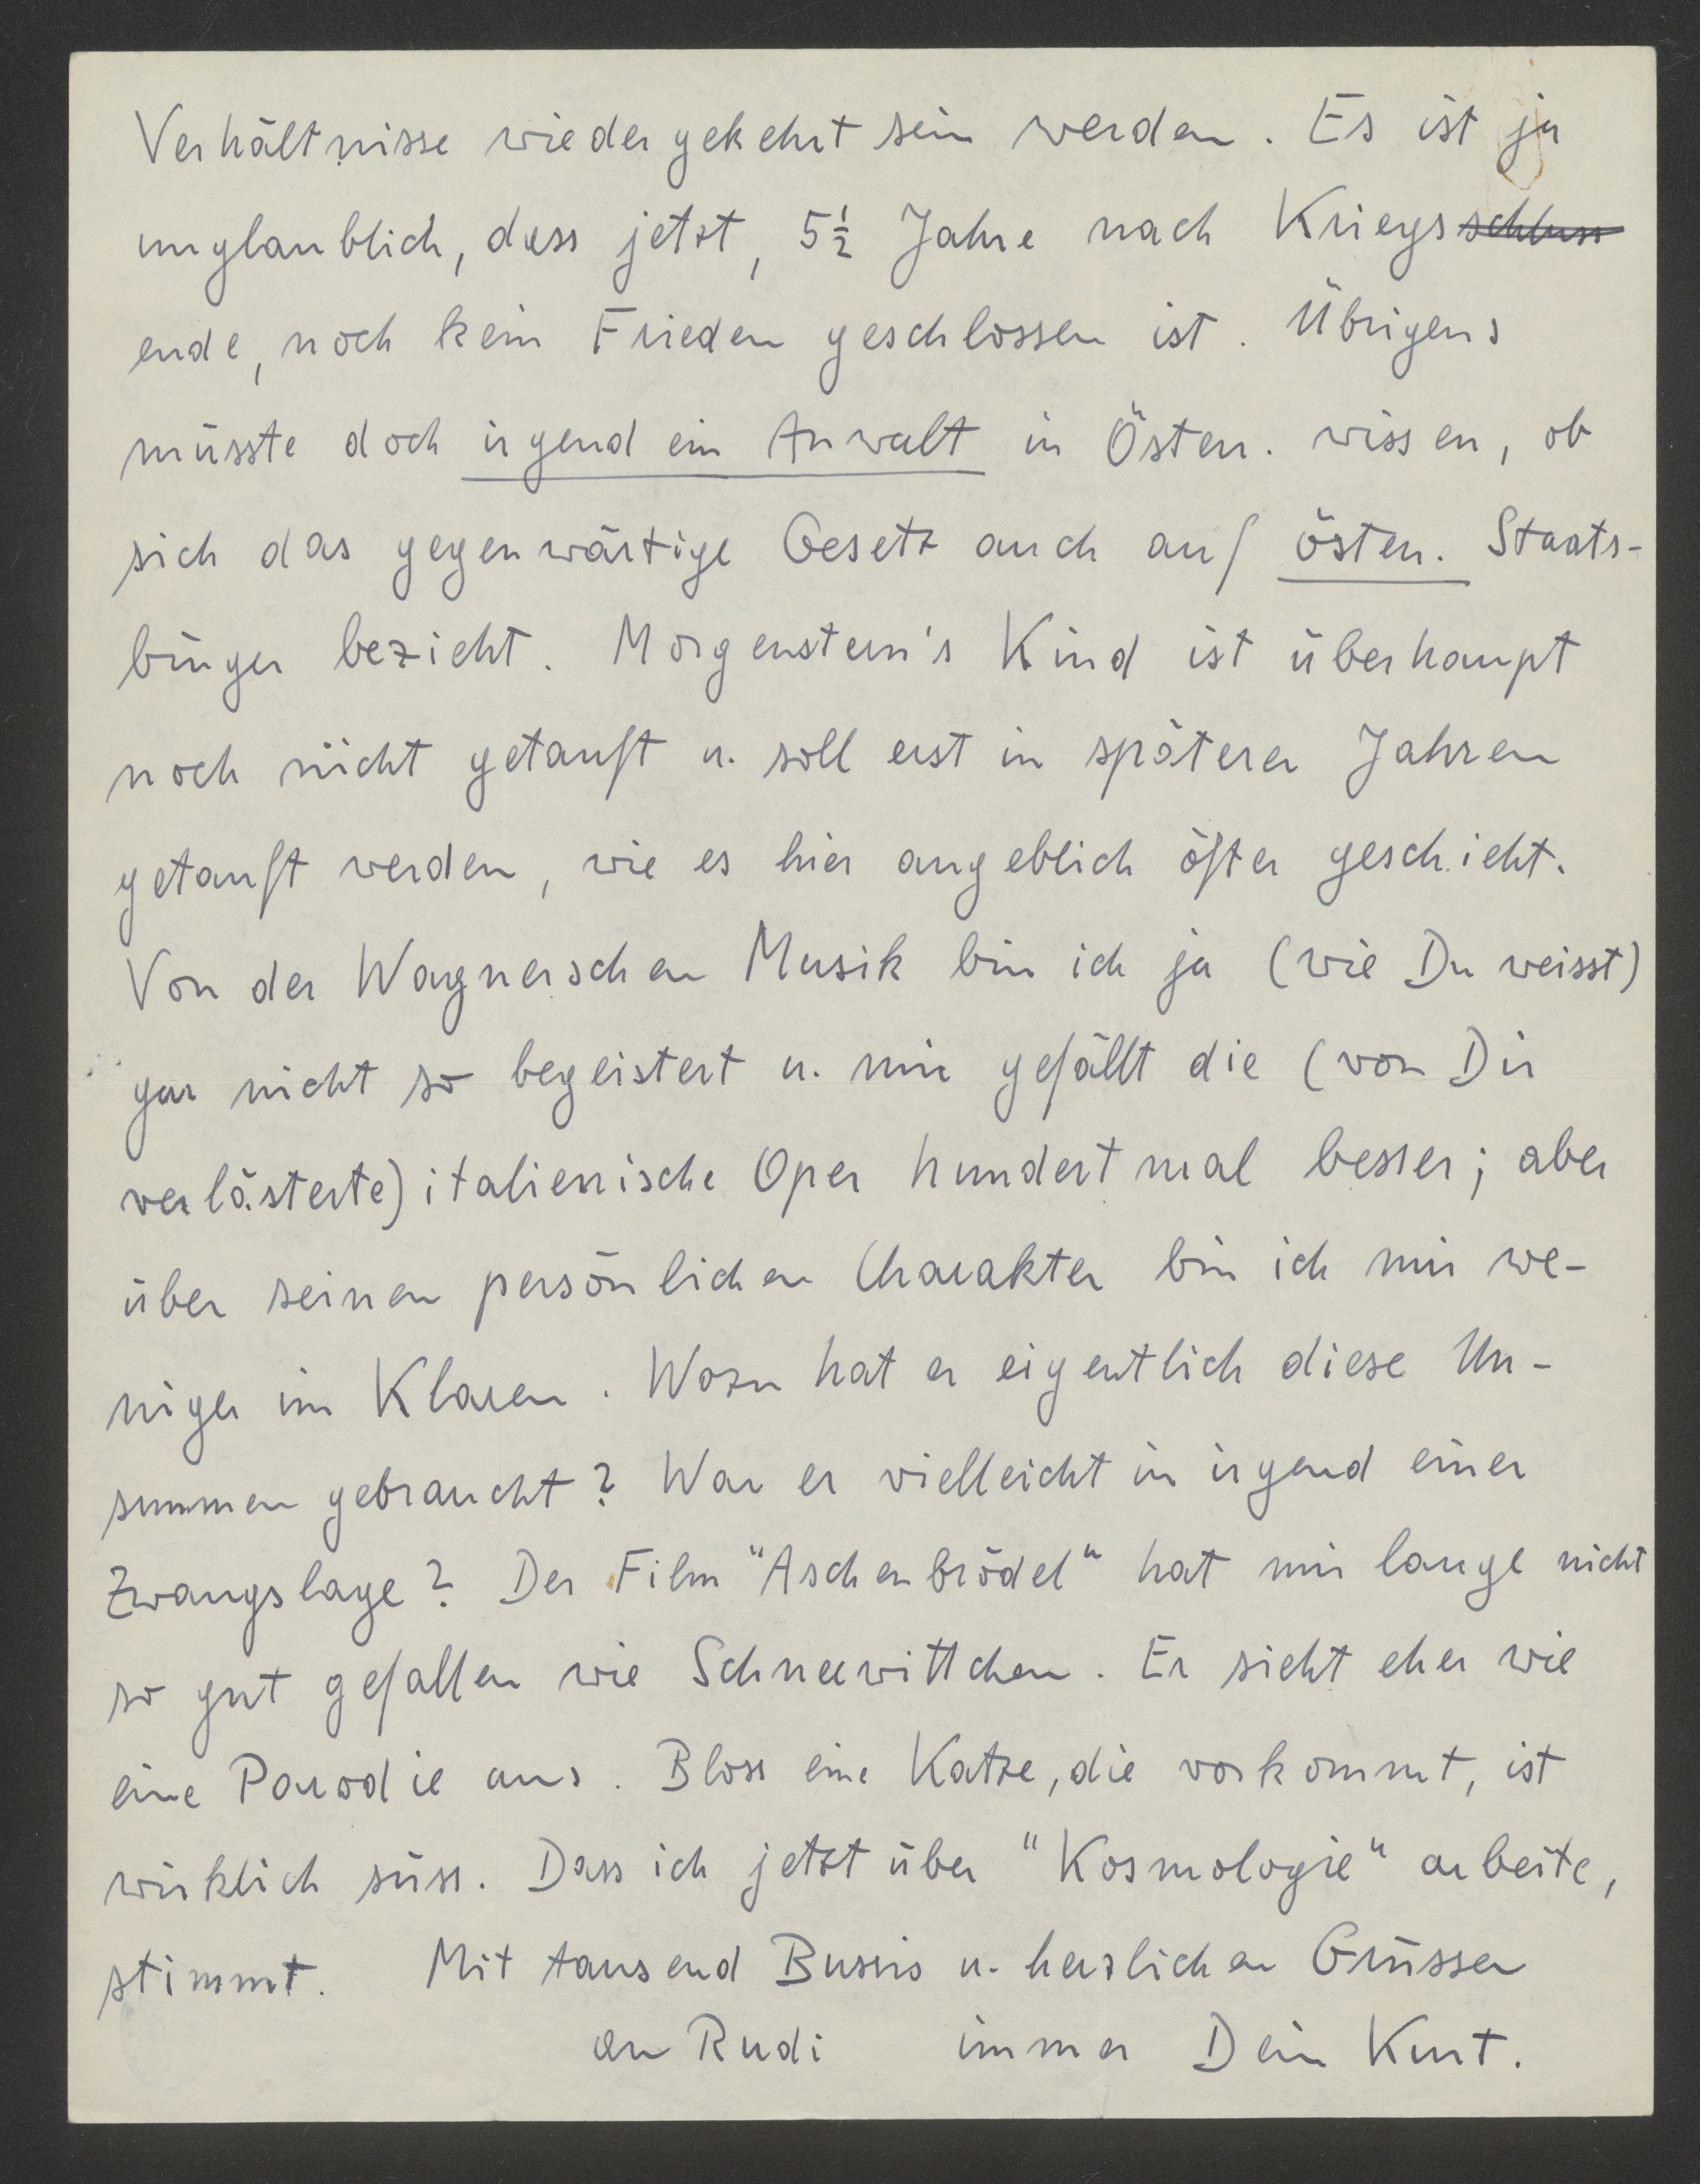 Verhältnisse wiedergekehrt sein werden. Es ist ja
unglaublich, dass jetzt, 5½ Jahre nach Kriegsschluss
ende, noch kein Frieden geschlossen ist. Übrigens
müsste doch irgend ein Anwalt in Österr. wissen, ob
sich das gegenwärtige Gesetz auch auf österr. Staats-
bürger bezieht. Morgenstern's Kind ist überhaupt
noch nicht getauft u. soll erst in späteren Jahren
getauft werden, wie es hier angeblich öfter geschieht.
Von der Wagnerschen Musik bin ich ja (wie Du weisst)
gar nicht so begeistert u. mir gefällt die (von Dir
verlästerte) italienische Oper hundertmal besser; aber
über seinen persönlichen Charakter bin ich mir we-
niger im Klaren. Wozu hat er eigentlich diese Un-
summen gebraucht? War er vielleicht in irgend einer
Zwangslage? Der Film "Aschenbrödel" hat mir lange nicht
so gut gefallen wie Schneewittchen. Er sieht eher wie
eine Parodie aus. Bloss eine Katze, die vorkommt, ist
wirklich süss. Dass ich jetzt über "Kosmologie" arbeite,
stimmt. Mit tausend Bussis u. herzlichen Grüssen
an Rudi immer Dein Kurt.